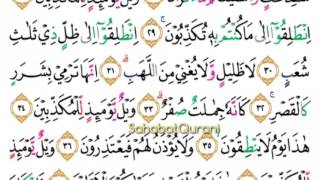 ٱنطَلِقُوٓا۟ إِلَىٰ مَا كُنتُم بِهِۦ تُكَذِّبُونَ ﴿٢٩﴾ ٱنطَلِقُوٓا۟ إِلَىٰ ظِلٍّ ذِى ثَلَٰثِ
شُعَبٍ ﴿٣٠﴾ لَّا ظَلِيلٍ وَلَا يُغْنِى مِنَ ٱللَّهَبِ ﴿٣١﴾ إِنَّهَا تَرْمِى بِشَرَرٍ
كَٱلْقَصْرِ ﴿٣٢﴾ كَأَنَّهُۥ جِمَٰلَتٌ صُفْرٌ ﴿٣٣﴾ وَيْلٌ يَوْمَئِذٍ لِّلْمُكَذِّبِينَ ﴿٣٤﴾
SahabatQurani
هَٰذَا يَوْمُ لَا يَنطِقُونَ ﴿٣٥﴾ وَلَا يُؤْذَنُ لَهُمْ فَيَعْتَذِرُونَ ﴿٣٦﴾ وَيْلٌ يَوْمَئِذٍ